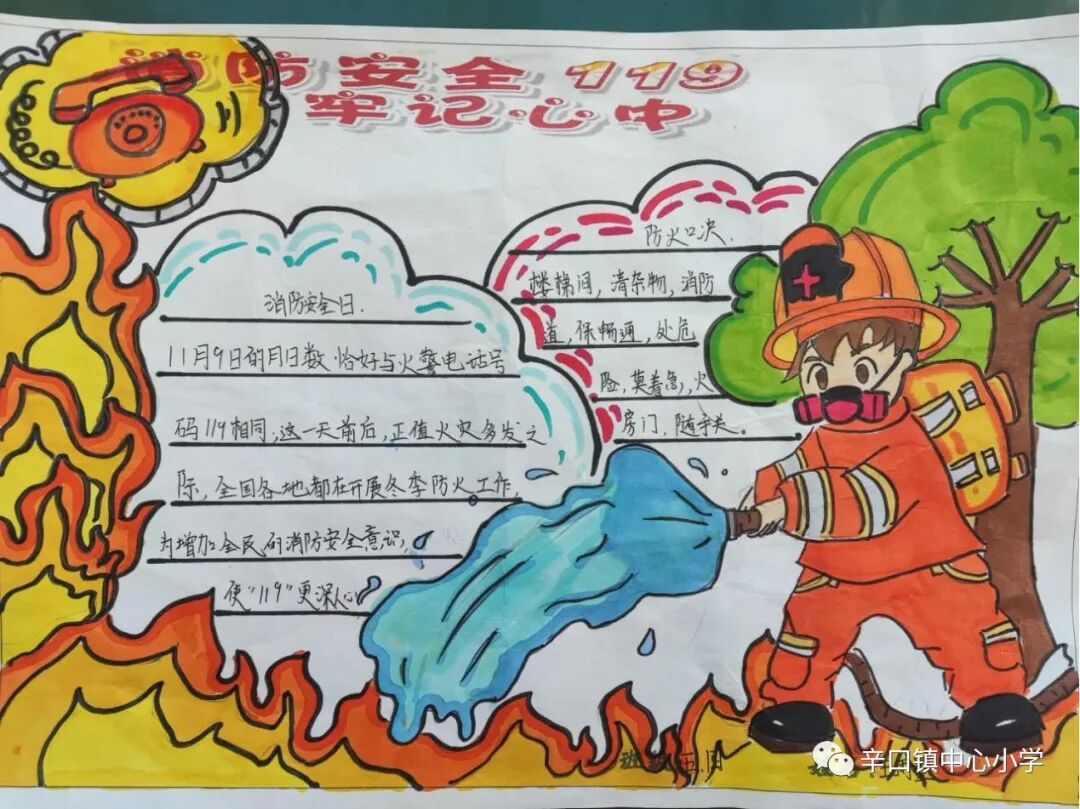 消防安全119
牢记心中
消防安全日.
11月9日的月日数恰好与火警电话号
码119相同,这一天前后,正值火灾多发之
际,全国各地都在开展冬季防火工作,
为增加全民的消防安全意识,
使“119”更深入心
防火口决.
楼梯间,清杂物,消防
道,保畅通,处危
险,莫着急,火
房门,随手关。
班级
辛口镇中心小学